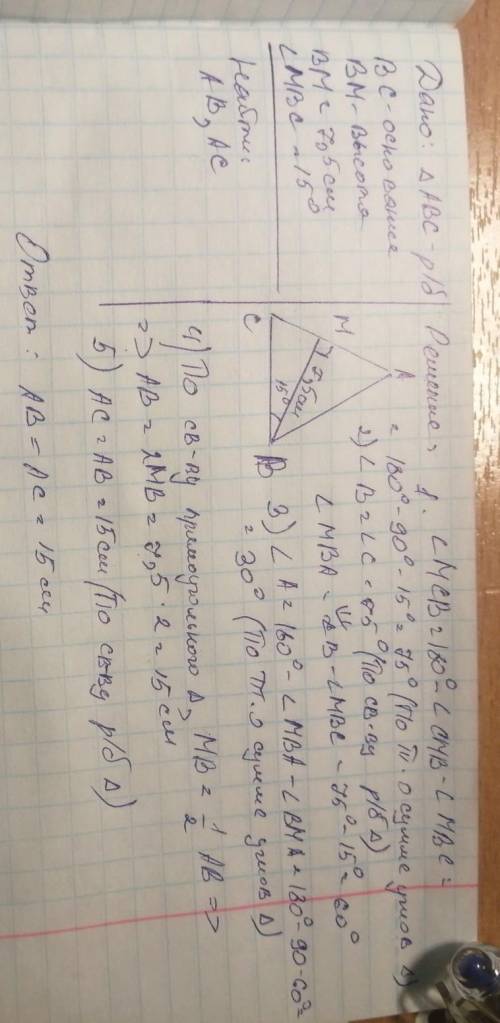 Дано: Δ ABC - р/б
BC - основание
BM - высота
BM = 7,5 см
∠MBC = 15°
Найти:
AB, AC
Решение:
1. ∠MCB = 180° - ∠CMB - ∠MBC =
= 180° - 90° - 15° = 75° (По т. о сумме углов Δ)
2) ∠B = ∠C = 75° (По св-ву р/б Δ)
⇓
∠MBA = ∠B - ∠MBC = 75° - 15° = 60°
3) ∠A = 180° - ∠MBA - ∠BMA = 180° - 90 - 60° =
= 30° (По т. о сумме углов Δ)
A
M
7,5 см
15°
C
B
4) По св-ву прямоугольного Δ, MB = 1/2 AB =>
=> AB = 2MB = 7,5 · 2 = 15 см
5) AC = AB = 15 см (По св-ву р/б Δ)
Ответ: AB = AC = 15 см